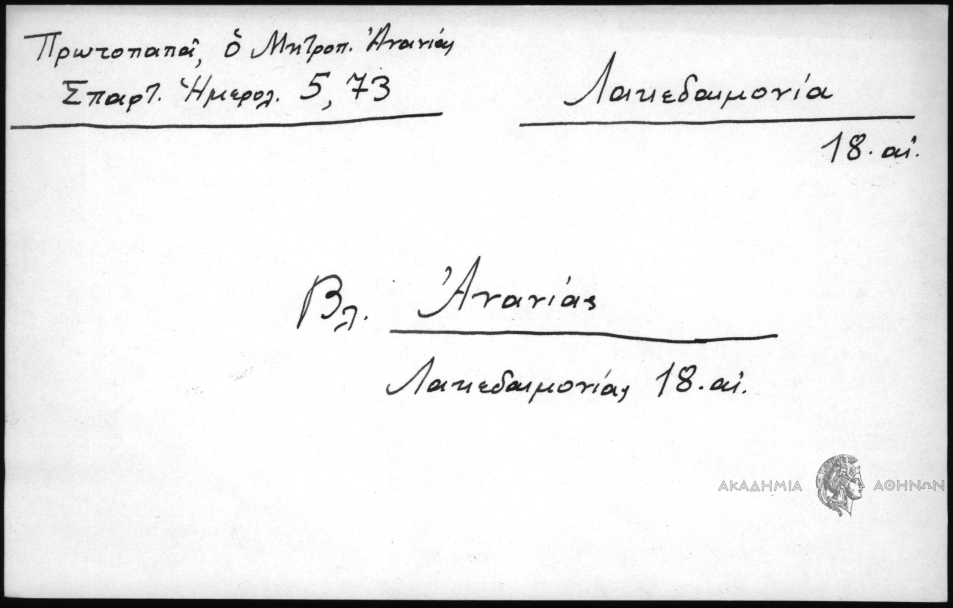 Πρωτοπαπᾶ, ὁ Μητροπ. Ἀνανίας
Σπαρτ. Ἡμερολ. 5, 73
Λακεδαιμονία
18. αἰ.
Βλ. Ἀνανίας
Λακεδαιμονίας 18. αἰ.
ΑΚΑΔΗΜΙΑ ΑΘΗΝΩΝ